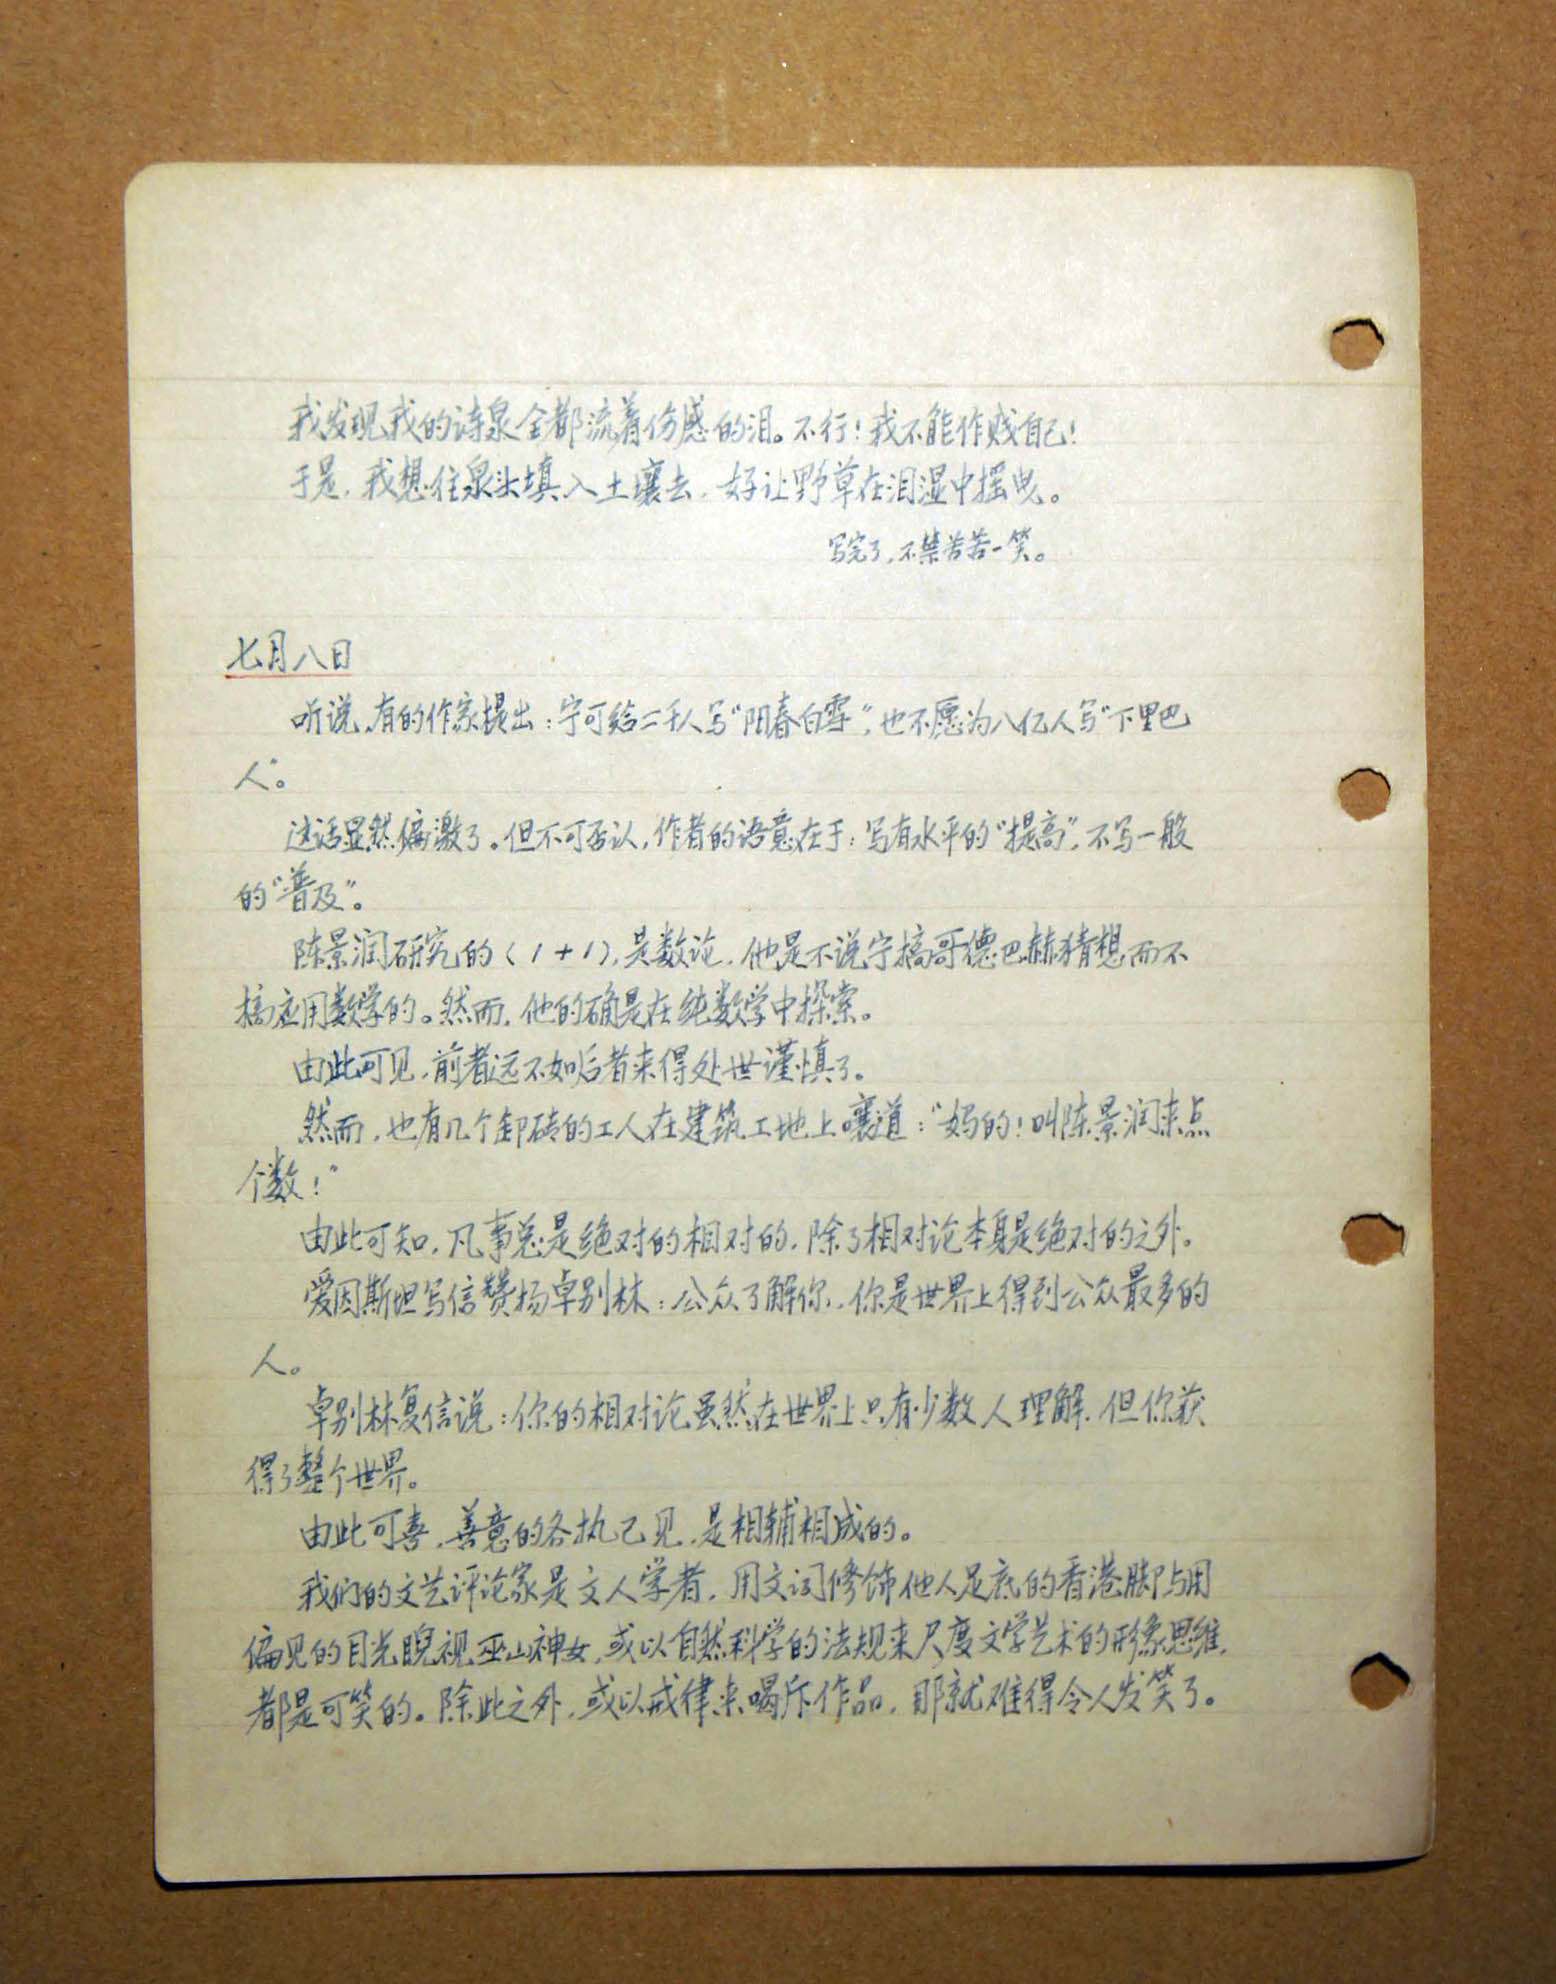 我发现我的诗泉全都流着伤感的泪。不行！我不能作贱自己！
于是，我想往泉头填入土壤去，好让野草在泪湿中摇曳。
写完了，不禁苦苦一笑。
七月八日
听说，有的作家提出：宁可给二千人写“阳春白雪”，也不愿为八亿人写“下里巴
人”。
这话显然偏激了。但不可否认，作者的语意在于：写有水平的“提高”，不写一般
的“普及”。
陈景润研究的（1+1），是数论，他是不说宁搞哥德巴赫猜想而不
搞应用数学的。然而，他的确是在纯数学中探索。
由此可见，前者远不如后者来得处世谨慎了。
然而，也有几个卸砖的工人在建筑工地上嚷道：“妈的！叫陈景润来点
个数！”
由此可知，凡事总是绝对的相对的，除了相对论本身是绝对的之外。
爱因斯坦写信赞扬卓别林：公众了解你，你是世界上得到公众最多的
人。
卓别林复信说：你的相对论虽然在世界上只有少数人理解，但你获
得了整个世界。
由此可喜，善意的各执己见，是相辅相成的。
我们的文艺评论家是文人学者，用文词修饰他人足底的香港脚与用
偏见的目光睨视巫山神女，或以自然科学的法规来尺度文学艺术的形象思维，
都是可笑的。除此之外，或以戒律来喝斥作品，那就难得令人发笑了。